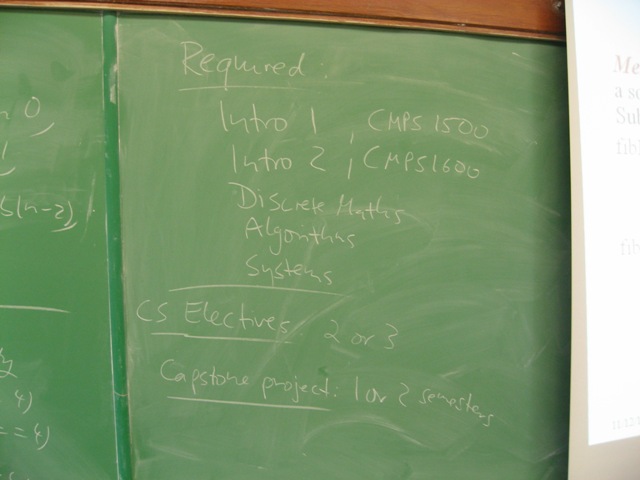 Required:
Intro 1, CMPS 1500
Intro 2, CMPS1600
Discrete Maths
Algorithms
Systems
CS Electives 2 or 3
Capstone project: 1 or 2 semesters
n 0
1
b(n-2)
4)
== 4)
Me
a so
Sub
fib
fib